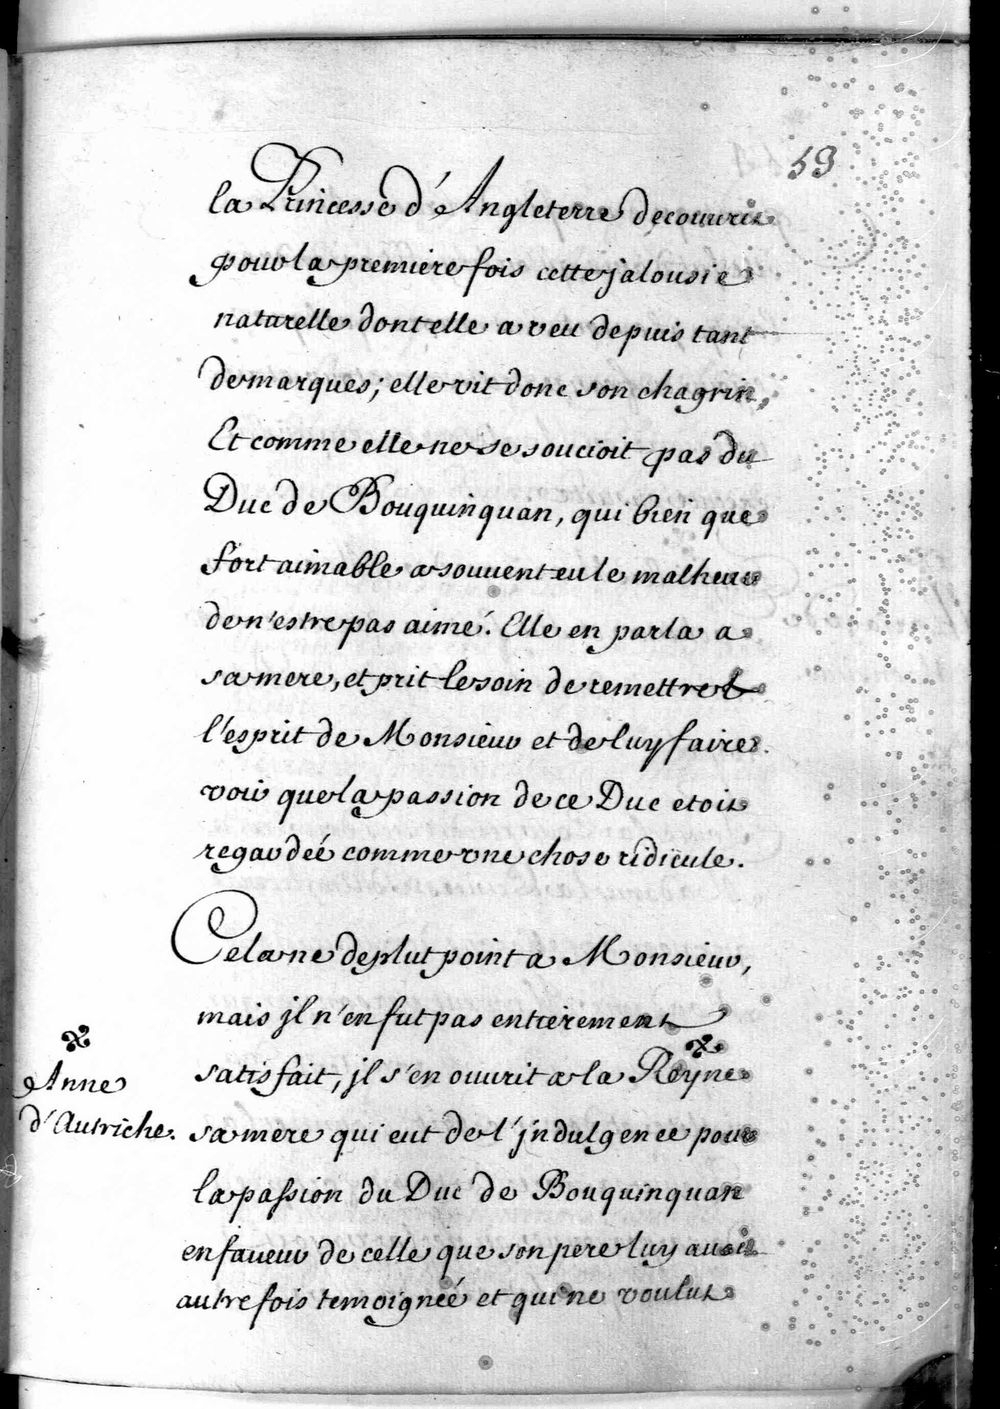 53
la Princesse d'Angleterre decouurit
pour la premiere fois cette jalousie
naturelle dont elle a veu depuis tant
de marques; elle vit donc son chagrin,
Et comme elle ne se soucioit pas du
Duc de Bouquinquan, qui bien que
fort aimable a souuent eu le malheur
de n'estre pas aimé. Elle en parla a
sa mere, et prit le soin de remettre
l'esprit de Monsieur et de luy faire
voir que la passion de ce Duc etoit
regardée comme vne chose ridicule.
Cela ne deplut point a Monsieur,
mais jl n'en fut pas entierement
satisfait, jl s'en ouurit a la Reyne
Anne
d'Autriche.
sa mere qui eut de l'jndulgence pour
la passion du Duc de Bouquinquan
en faueur de celle que son pere luy auoit
autrefois temoignée et qui ne voulut